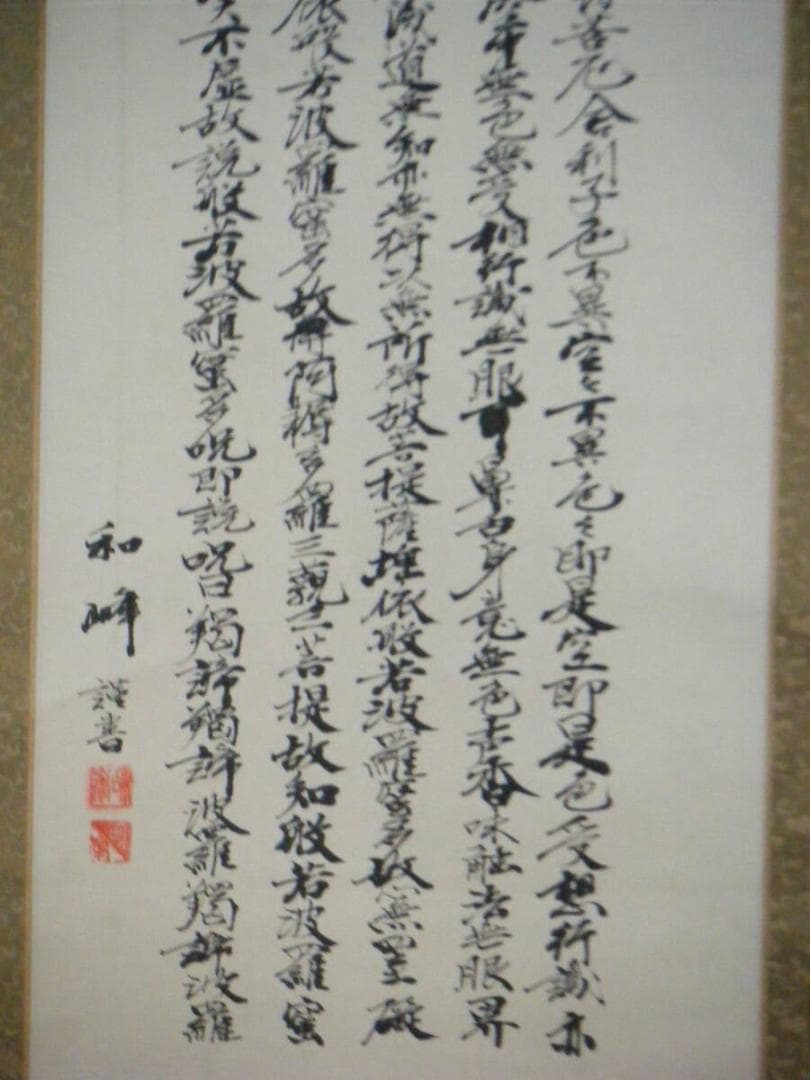 苦厄舍利子色不異空々不異色々即是空即是色受想行識亦
中無色無受想行識無眼耳鼻舌身意無色声香味触法無眼界
滅道無知亦無得以無所得故菩提薩埵依般若波羅蜜多故心無罣礙
依般若波羅蜜多故得阿耨多羅三藐三菩提故知般若波羅蜜
不虚故説般若波羅蜜多呪即説呪曰羯諦羯諦波羅羯諦波羅
和峰
謹書